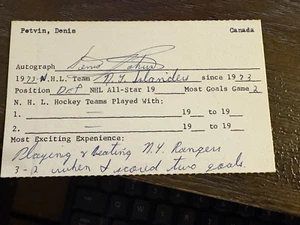 Potvin, Denis Canada
Autograph Denis Potvin
1973-N.H.L. Team N.Y. Islanders since 1973
Position Def NHL All-Star 19 Most Goals Game 2
N. H. L. Hockey Teams Played With:
1. 19 to 19
2. 19 to 19
Most Exciting Experience:
Playing & beating N.Y. Rangers
3-2 when I scored two goals.